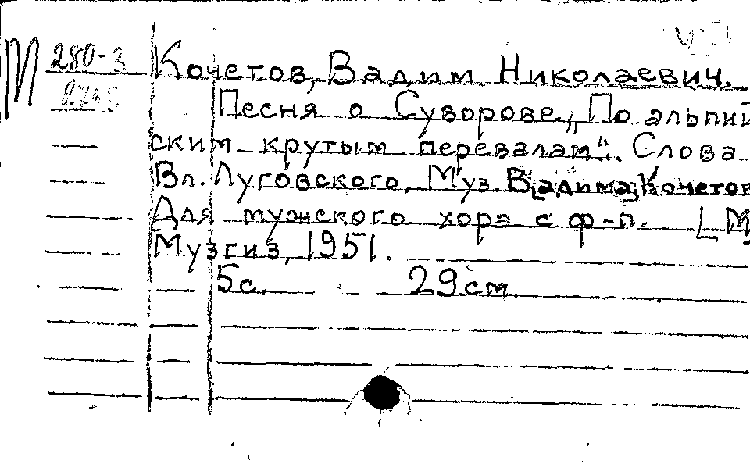 М 280-3 Кочетов, Вадим Николаевич.
Песня о Суворове „По альпий
ским крутым перевалам“. Слова
Вл. Луговского, Муз. В[адима] Кочетов
Для мужского хора с ф-п. [М
Музгиз, 1951.
5с. 29см